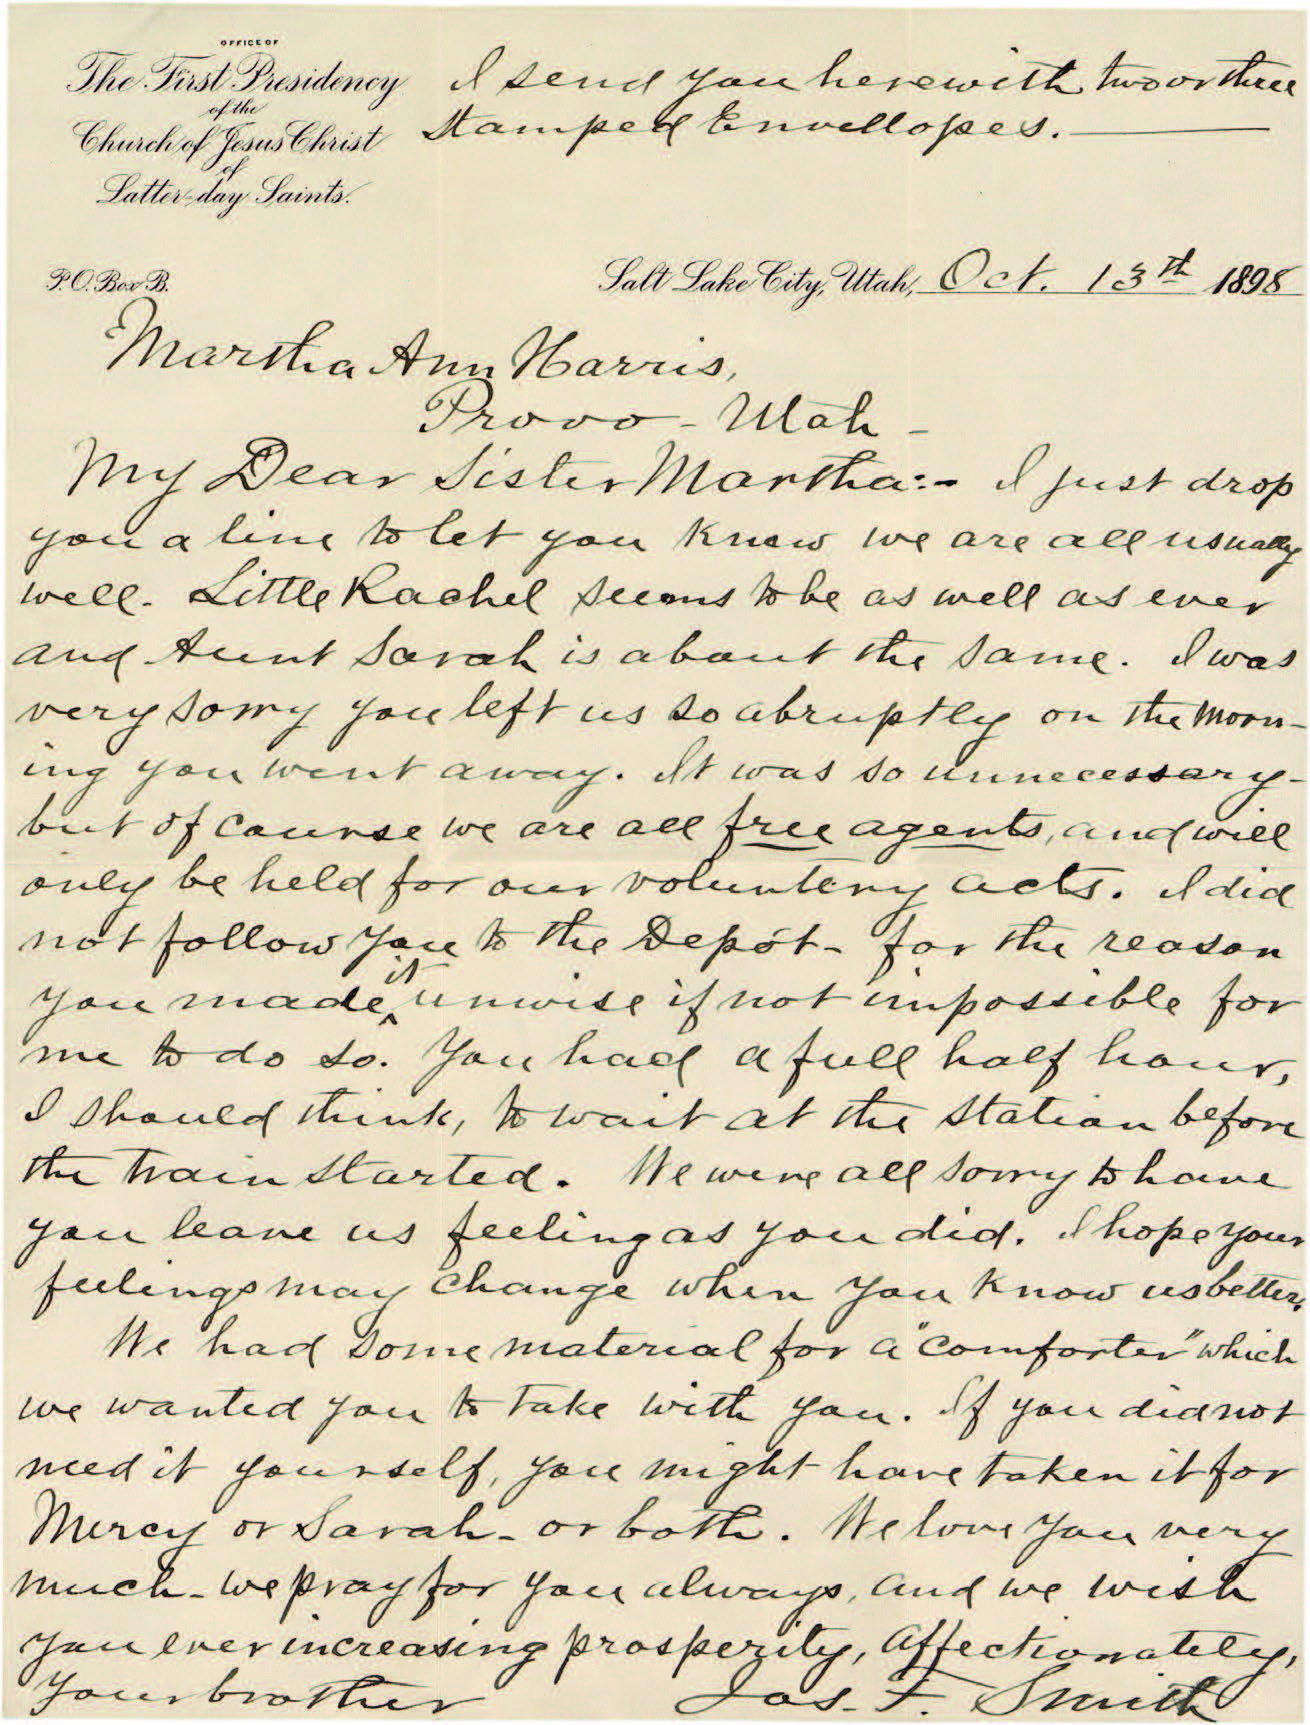 OFFICE OF
The First Presidency
of the
Church of Jesus Christ
of
Latter-day Saints.
I send you herewith two or three
stamped Envellopes.
P.O. Box B.
Salt Lake City, Utah, Oct. 13th 1898
Martha Ann Harris,
Provo - Utah -
My Dear Sister Martha:- I just drop
you a line to let you know we are all usually
well. Little Rachel seems to be as well as ever
and Aunt Sarah is about the same. I was
very sorry you left us so abruptly on the morn-
ing you went away. It was so unnecessary-
but of course we are all free agents, and will
only be held for our voluntery acts. I did
not follow you to the Depót- for the reason
you made it unwise if not impossible for
me to do so. You had a full half hour,
I should think, to wait at the station before
the train started. We were all sorry to have
you leave us feeling as you did. I hope your
feelings may change when you know us better.
We had some material for a "comforter" which
we wanted you to take with you. If you did not
need it yourself, you might have taken it for
Mercy or Sarah - or both. We love you very
much - we pray for you always, and we wish
you ever increasing prosperity, affectionately,
Your brother Jos. F. Smith